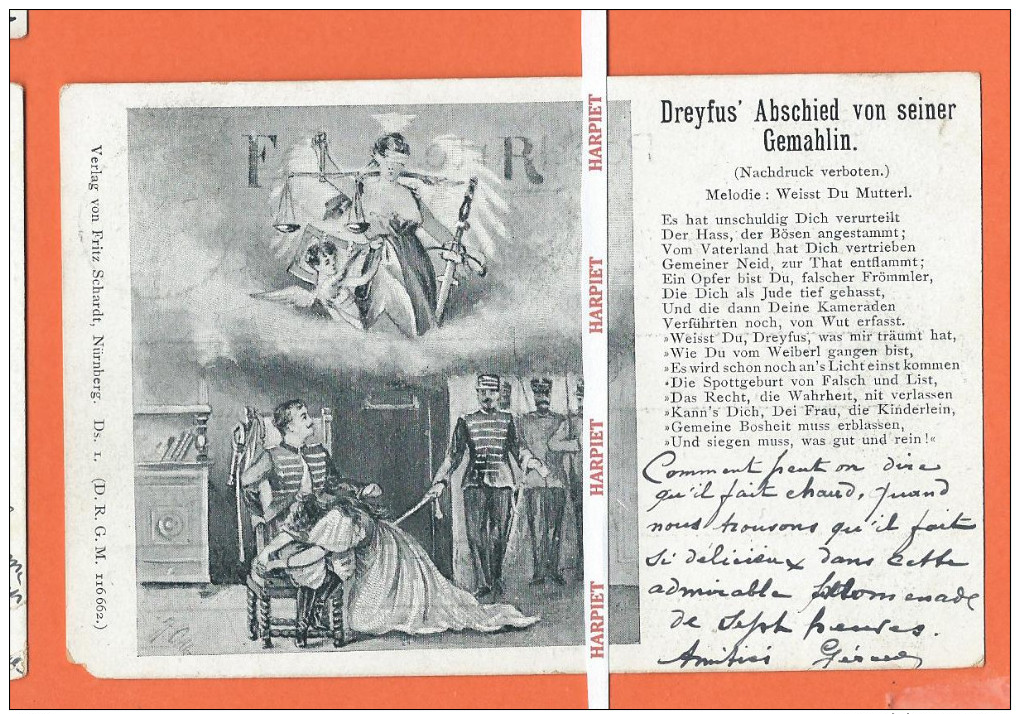 Verlag von Fritz Schardt, Nürnberg. Ds. 1. (D. R. G. M. 116662.)
F R
HARPIET
HARPIET
HARPIET
HARPIET
Dreyfus' Abschied von seiner
Gemahlin.
(Nachdruck verboten.)
Melodie: Weisst Du Mutterl.
Es hat unschuldig Dich verurteilt
Der Hass, der Bösen angestammt;
Vom Vaterland hat Dich vertrieben
Gemeiner Neid, zur That entflammt;
Ein Opfer bist Du, falscher Frömmler,
Die Dich als Jude tief gehasst,
Und die dann Deine Kameraden
Verführten noch, von Wut erfasst.
»Weisst Du, Dreyfus, was mir träumt hat,
»Wie Du vom Weiberl gangen bist,
»Es wird schon noch an's Licht einst kommen
»Die Spottgeburt von Falsch und List,
»Das Recht, die Wahrheit, nit verlassen
»Kann's Dich, Dei Frau, die Kinderlein,
»Gemeine Bosheit muss erblassen,
»Und siegen muss, was gut und rein!«
Comment peut on dire
qu'il fait chaud, quand
nous trouvons qu'il fait
si délicieux dans cette
admirable promenade
de sept heures.
Amitiés